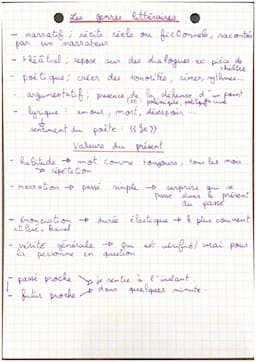 Les genres littéraires
- narratif ; récits réels ou fictionnels, racontés
par un narrateur
- théâtral ; repose sur des dialogues. ex : pièce de
théâtre
- poétique ; créer des sonorités, rimes, rythmes...
- argumentatif ; présence de la défense d'un point
(ex : polémique, politique
- lyrique : amour, mort, désespoir ...
sentiment du poète : ((Je))
Valeurs du présent
- habitude → mot comme toujours, tous les
→ répétition
- narration → passé simple → surprise qui se
passe dans le présent
du passé
- énonciation → durée élastique → le plus souvent
utilisé.
- vérité générale → Qui est vérifié/vrai pour
la personne en question
- passé proche → je rentre à l'instant
- futur proche → dans quelques minute